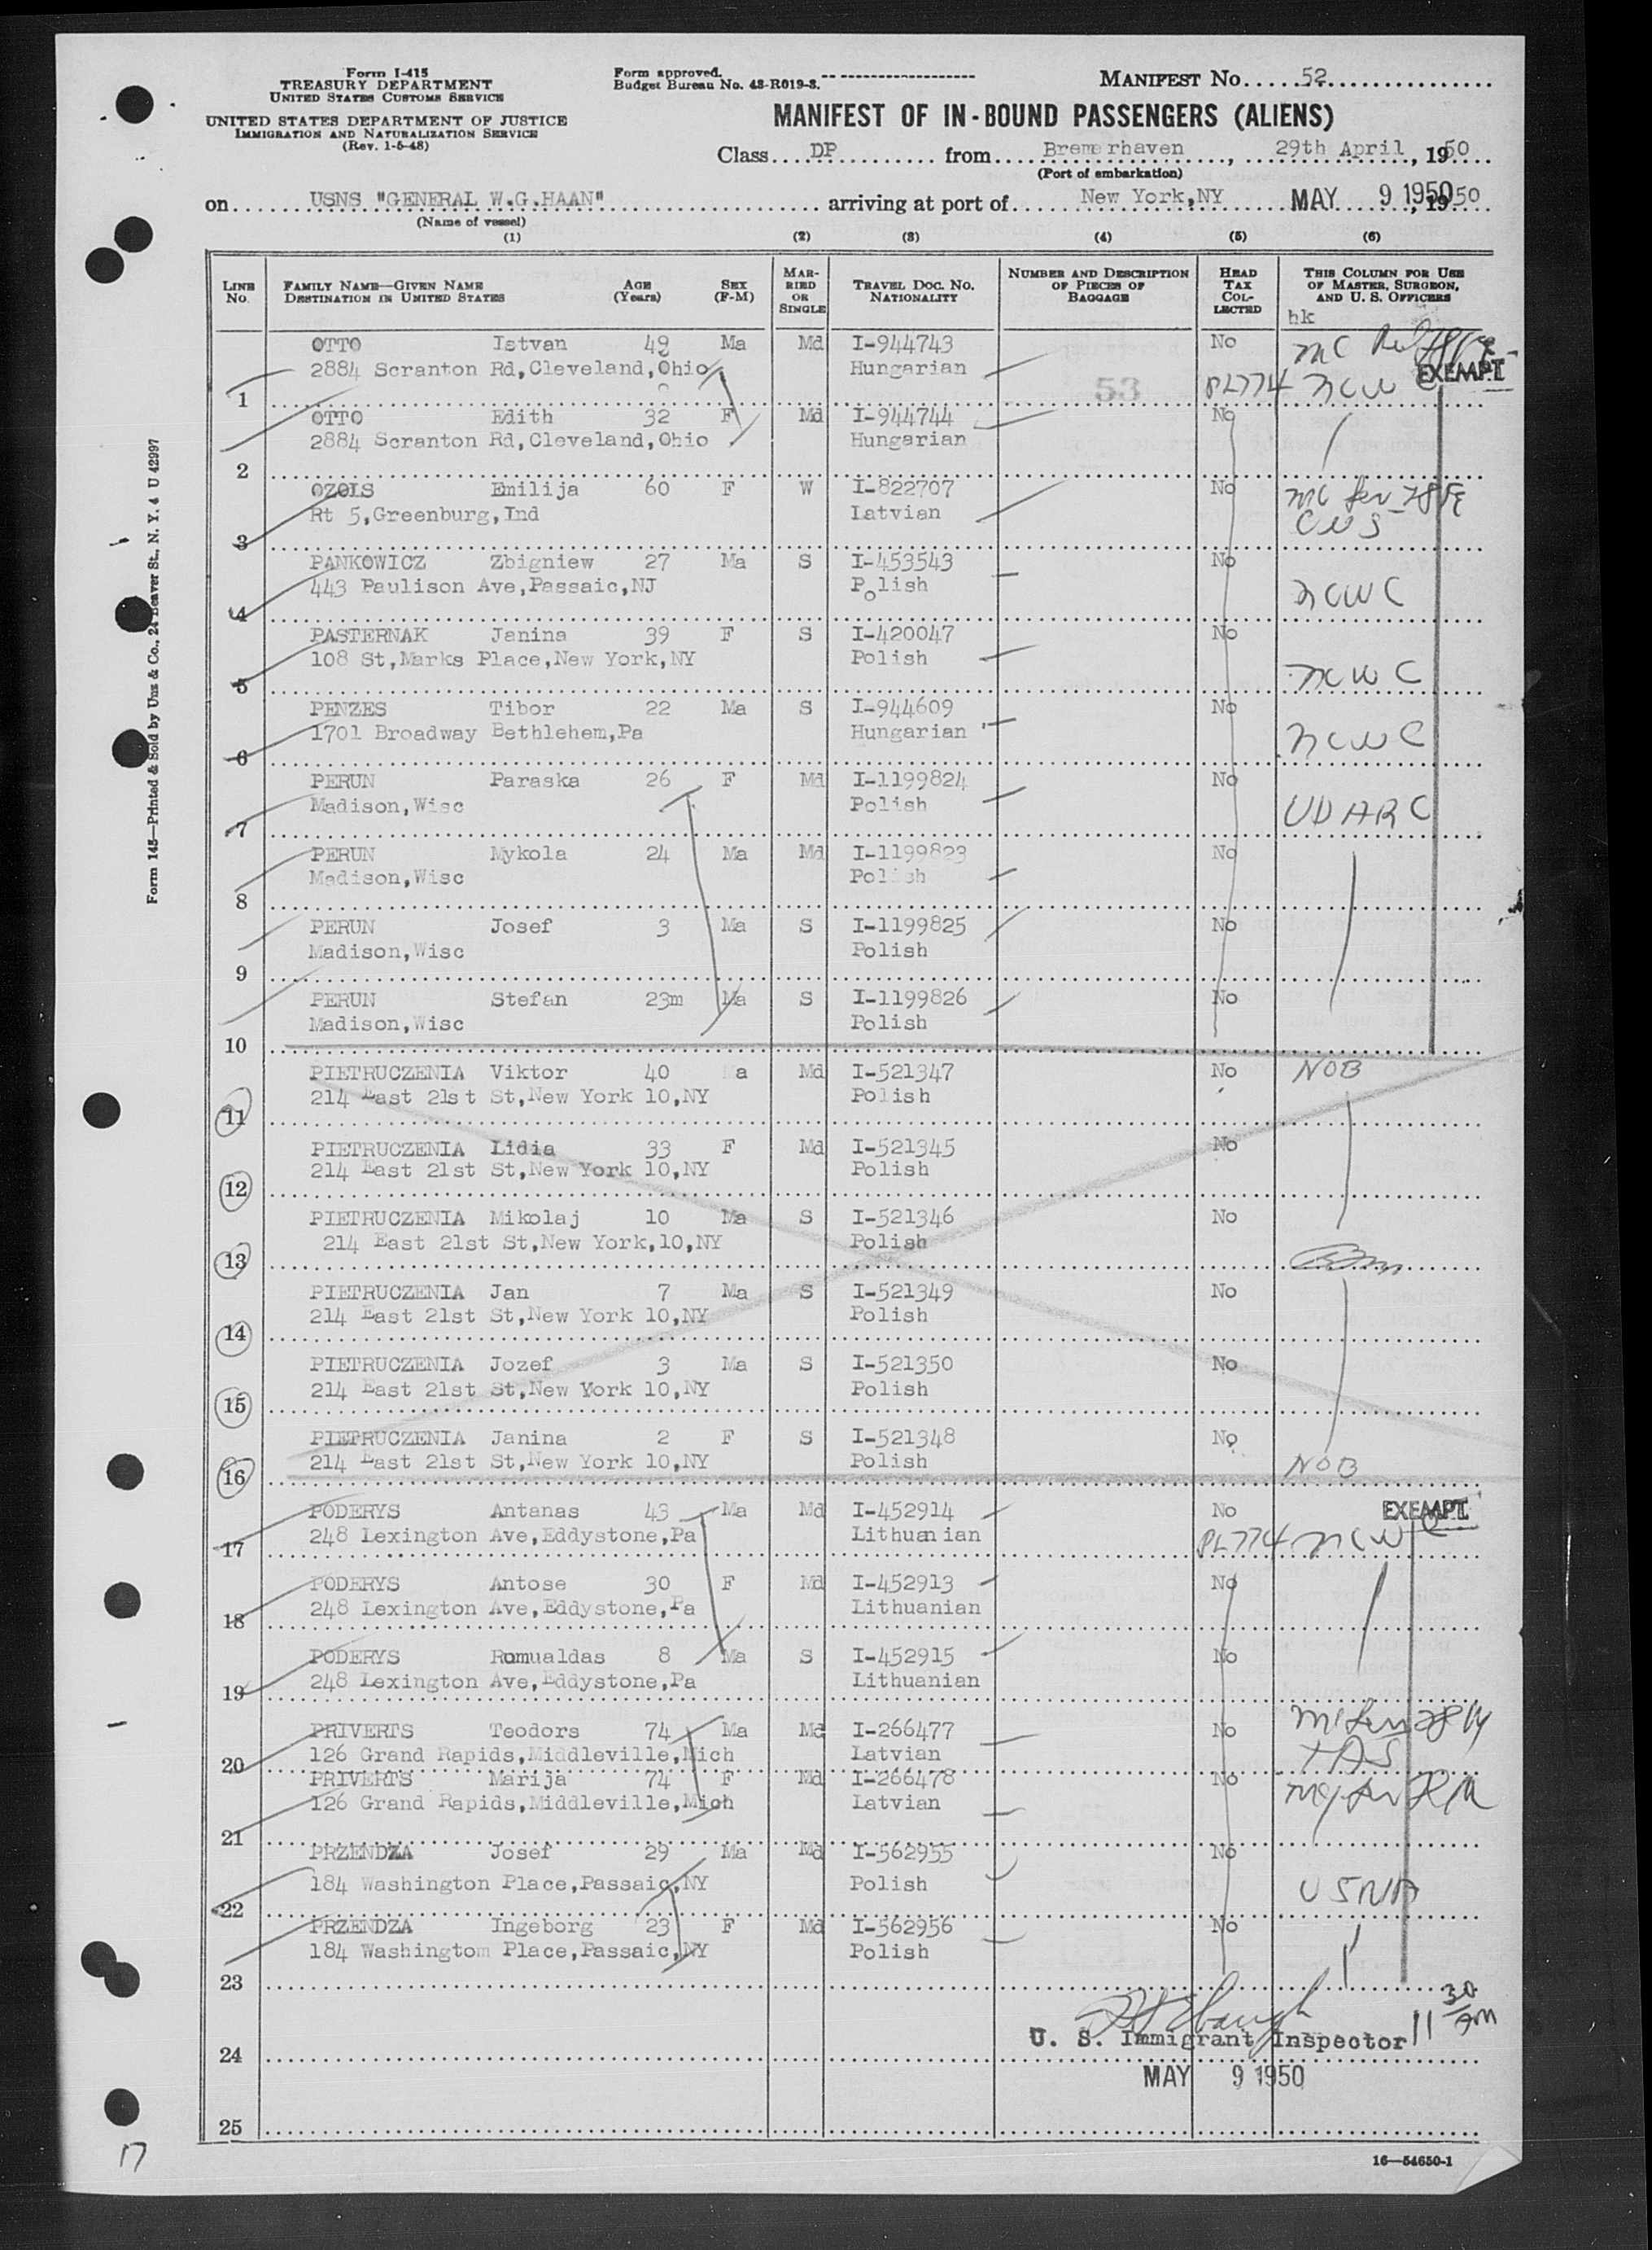 Form I-415
TREASURY DEPARTMENT
UNITED STATES CUSTOMS SERVICE
UNITED STATES DEPARTMENT OF JUSTICE
IMMIGRATION AND NATURALIZATION SERVICE
(Rev. 1-5-48)
Form approved.
Budget Bureau No. 43-R019-3.
MANIFEST No. 52
MANIFEST OF IN-BOUND PASSENGERS (ALIENS)
Class DP from Bremerhaven, 29th April, 1950
(Port of embarkation)
on USNS "GENERAL W.G.HAAN" arriving at port of New York,NY MAY 9 1950, 1950
(Name of vessel)
(1) (2) (3) (4) (5) (6)
LINE No. FAMILY NAME—GIVEN NAME DESTINATION IN UNITED STATES AGE (Years) SEX (F-M) MARRIED OR SINGLE TRAVEL DOC. No. NATIONALITY NUMBER AND DESCRIPTION OF PIECES OF BAGGAGE HEAD TAX COLLECTED THIS COLUMN FOR USE OF MASTER, SURGEON, AND U. S. OFFICERS
hk
OTTO Istvan 49 Ma Md I-944743 No MC
2884 Scranton Rd,Cleveland,Ohio Hungarian EXEMPT
1 53 PL774 NCWC
OTTO Edith 32 F Md I-944744 No
2884 Scranton Rd,Cleveland,Ohio Hungarian
2
OZOLS Emilija 60 F W I-822707 No
Rt 5,Greenburg,Ind Latvian CWS
3
PANKOWICZ Zbigniew 27 Ma S I-453543 No
443 Paulison Ave,Passaic,NJ Polish NCWC
4
PASTERNAK Janina 39 F S I-420047 No
108 St,Marks Place,New York,NY Polish NCWC
5
PENZES Tibor 22 Ma S I-944609 No
1701 Broadway Bethlehem,Pa Hungarian NCWC
6
PERUN Paraska 26 F Md I-1199824 No
Madison,Wisc Polish UUARC
7
PERUN Mykola 24 Ma Md I-1199823 No
Madison,Wisc Polish
8
PERUN Josef 3 Ma S I-1199825 No
Madison,Wisc Polish
9
PERUN Stefan 23m Ma S I-1199826 No
Madison,Wisc Polish
10
PIETRUCZENIA Viktor 40 a Md I-521347 No NOB
214 East 21st St,New York 10,NY Polish
11
PIETRUCZENIA Lidia 33 F Md I-521345 No
214 East 21st St,New York 10,NY Polish
12
PIETRUCZENIA Mikolaj 10 Ma S I-521346 No
214 East 21st St,New York,10,NY Polish
13
PIETRUCZENIA Jan 7 Ma S I-521349 No
214 East 21st St,New York 10,NY Polish
14
PIETRUCZENIA Jozef 3 Ma S I-521350 No
214 East 21st St,New York 10,NY Polish
15
PIETRUCZENIA Janina 2 F S I-521348 No
214 East 21st St,New York 10,NY Polish NOB
16
PODERYS Antanas 43 Ma Md I-452914 No EXEMPT
248 Lexington Ave,Eddystone,Pa Lithuanian PL774 NCWC
17
PODERYS Antose 30 F Md I-452913 No
248 Lexington Ave,Eddystone,Pa Lithuanian
18
PODERYS Romualdas 8 Ma S I-452915 No
248 Lexington Ave,Eddystone,Pa Lithuanian
19
PRIVERTS Teodors 74 Ma Md I-266477 No
126 Grand Rapids,Middleville,Mich Latvian
20
PRIVERTS Marija 74 F Md I-266478 No
126 Grand Rapids,Middleville,Mich Latvian
21
PRZENDZA Josef 29 Ma Md I-562955 No
184 Washington Place,Passaic,NY Polish USNA
22
PRZENDZA Ingeborg 23 F Md I-562956 No
184 Washingtom Place,Passaic,NY Polish
23
U. S. Immigrant Inspector 11 30 AM
24
MAY 9 1950
25
16—54650-1
Form 145—Printed & Sold by Unz & Co., 24 Beaver St., N. Y. 4 U 42997
17